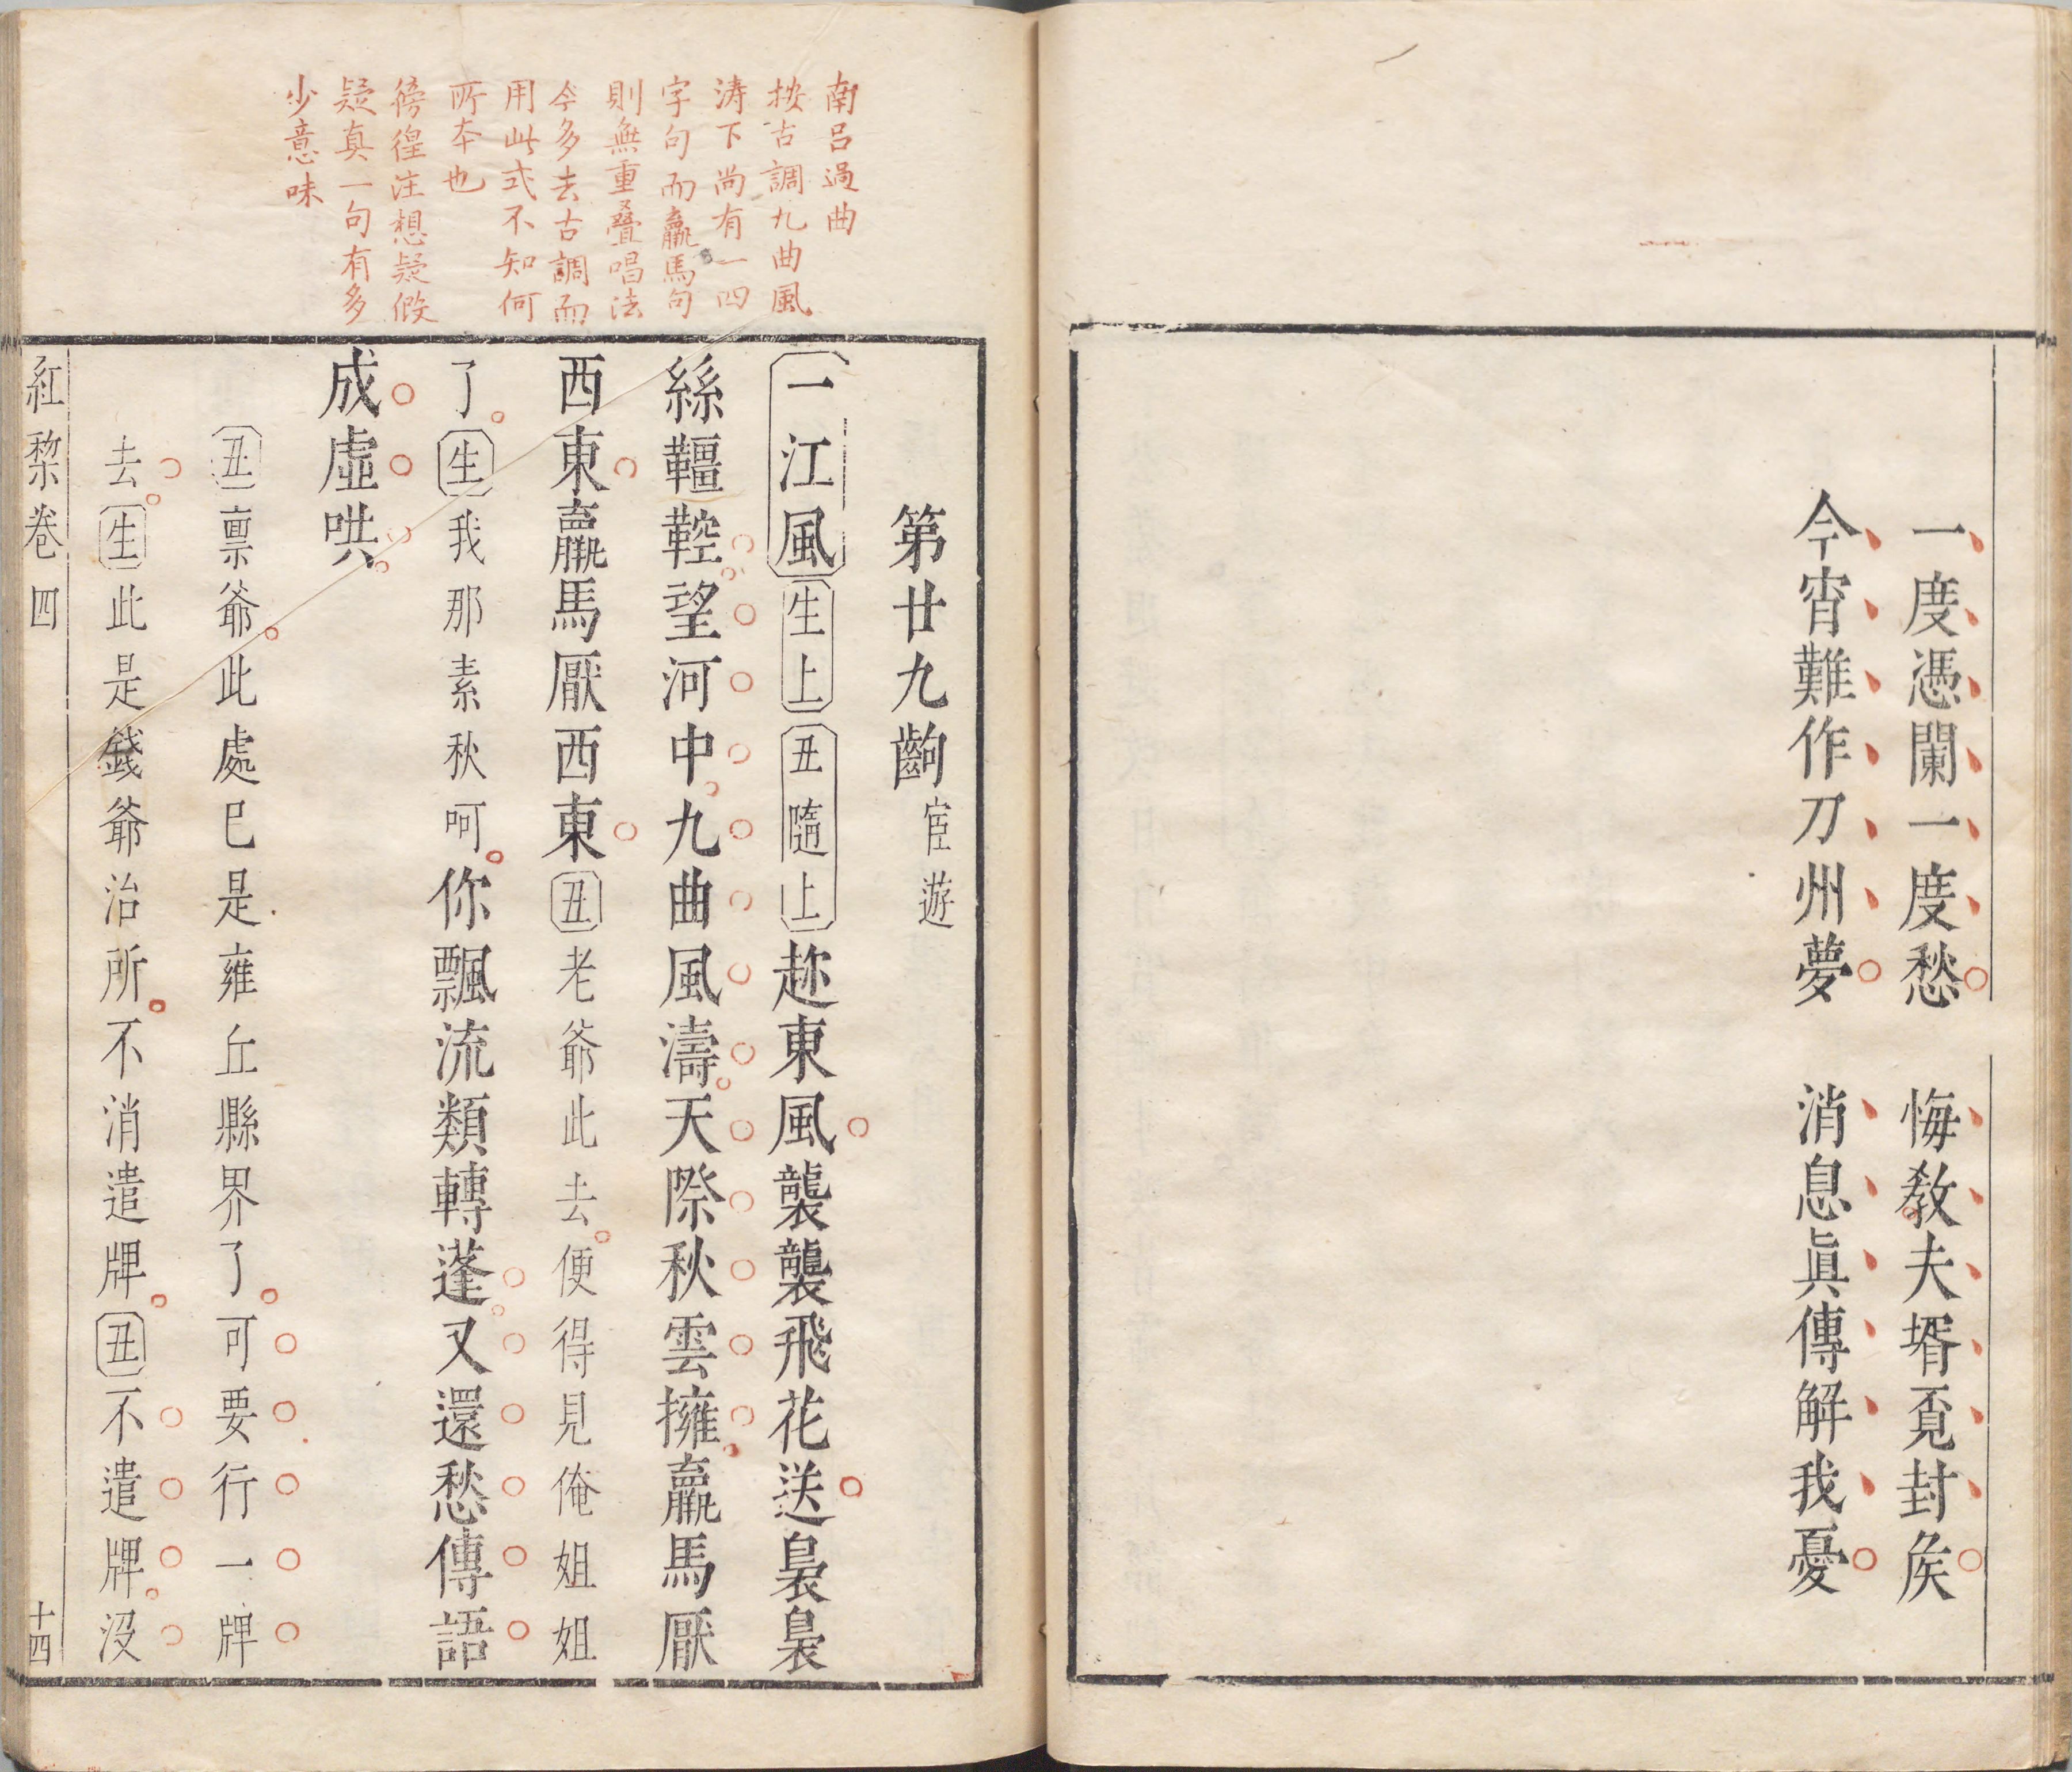 一度憑闌一度愁　悔教夫壻覔封矦
今宵難作刀州夢　消息眞傳解我憂
南呂過曲
按古調九曲風
涛下尚有一四
字句而羸馬句
則無重疊唱法
今多去古調而
用此式不知何
所本也
徬徨注想疑假
疑真一句有多
少意味
第廿九齣 宦遊
一江風 生上 丑隨上 趂東風襲襲飛花送裊裊
絲韁鞚望河中九曲風濤天際秋雲擁羸馬厭
西東羸馬厭西東 丑 老爺此去便得見俺姐姐
了 生 我那素秋呵你飄流類轉蓬又還愁傳語
成虛哄
丑 禀爺此處巳是雍丘縣界了可要行一牌
去 生 此是錢爺治所不消遣牌 丑 不遣牌沒
紅棃卷四 十四